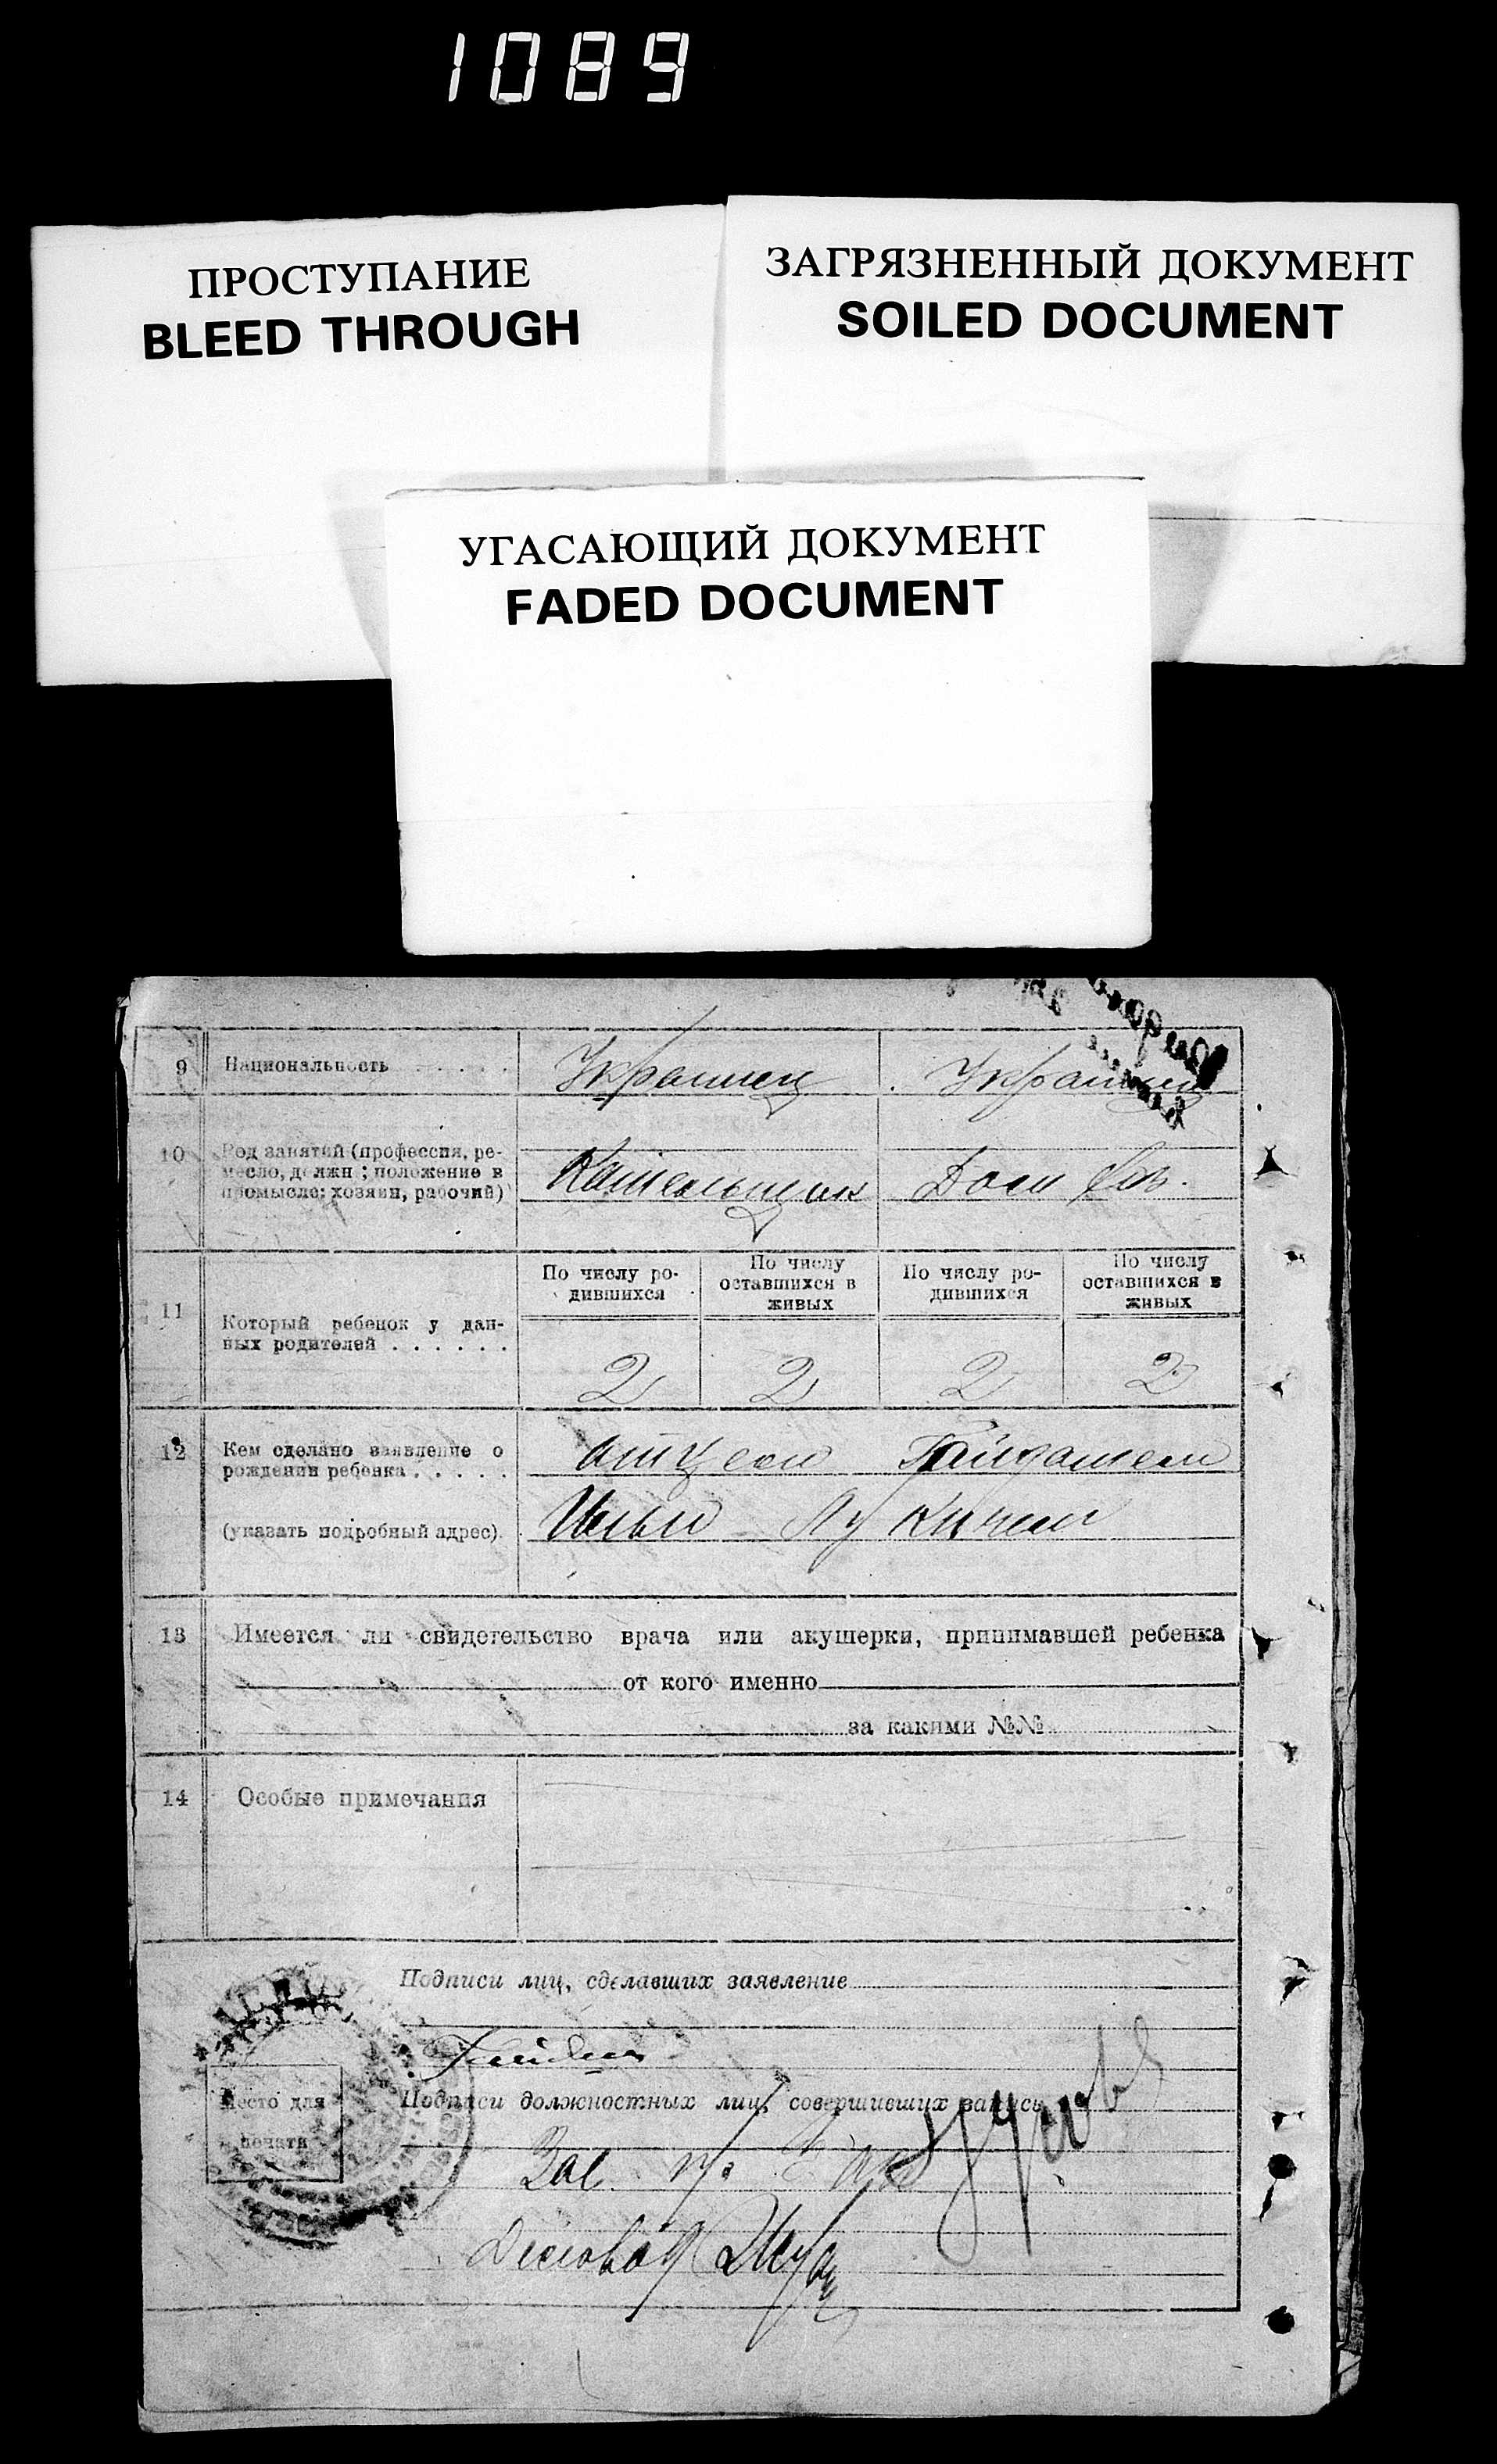 1089
ПРОСТУПАНИЕ
BLEED THROUGH
ЗАГРЯЗНЕННЫЙ ДОКУМЕНТ
SOILED DOCUMENT
УГАСАЮЩИЙ ДОКУМЕНТ
FADED DOCUMENT
9 Национальность . . . . . Украинец Украинка
10 Род занятий (професспя, ре-
месло, должн ; положение в
промысле: хозяин, рабочий)
Котельщик Дом хоз.
11 Который ребенок у дан-
ных родителей . . . . . .
По числу ро-
дившихся
По числу
оставшихся в
живых
По числу ро-
дившихся
По числу
оставшихся в
живых
2 2 2 2
12 Кем сделано заявление о
рождении ребенка . . . . .
(указать подробный адрес).
отцом Гайдашем
Ильи Лукичем
13 Имеется ли свидетельство врача или акушерки, принимавшей ребенка
от кого именно
за какими №№
14 Особые примечания
Подписи лиц, сделавших заявление
Место для
печати
Подписи должностных лиц, совершивших запись
Зав.